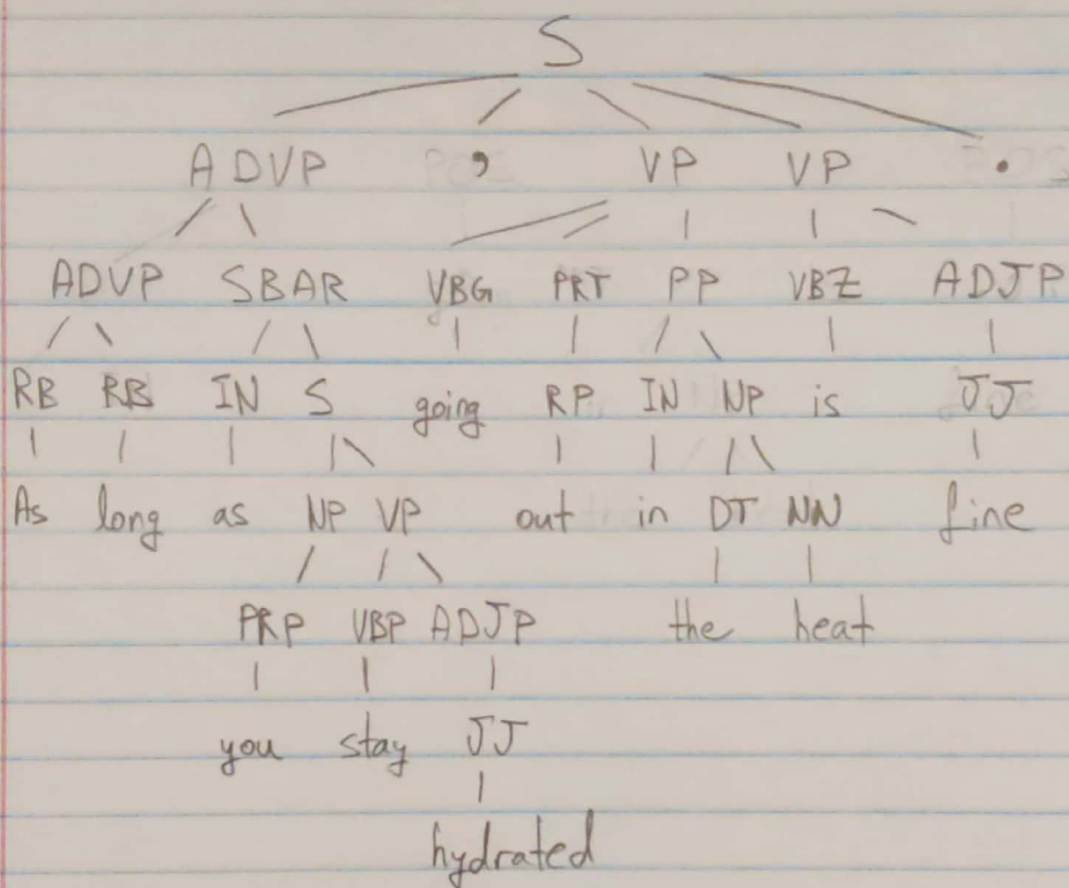 S
ADVP , VP VP .
ADVP SBAR VBG PRT PP VBZ ADJP
RB RB IN S going RP IN NP is JJ
As long as NP VP out in DT NN fine
PRP VBP ADJP the heat
you stay JJ
hydrated